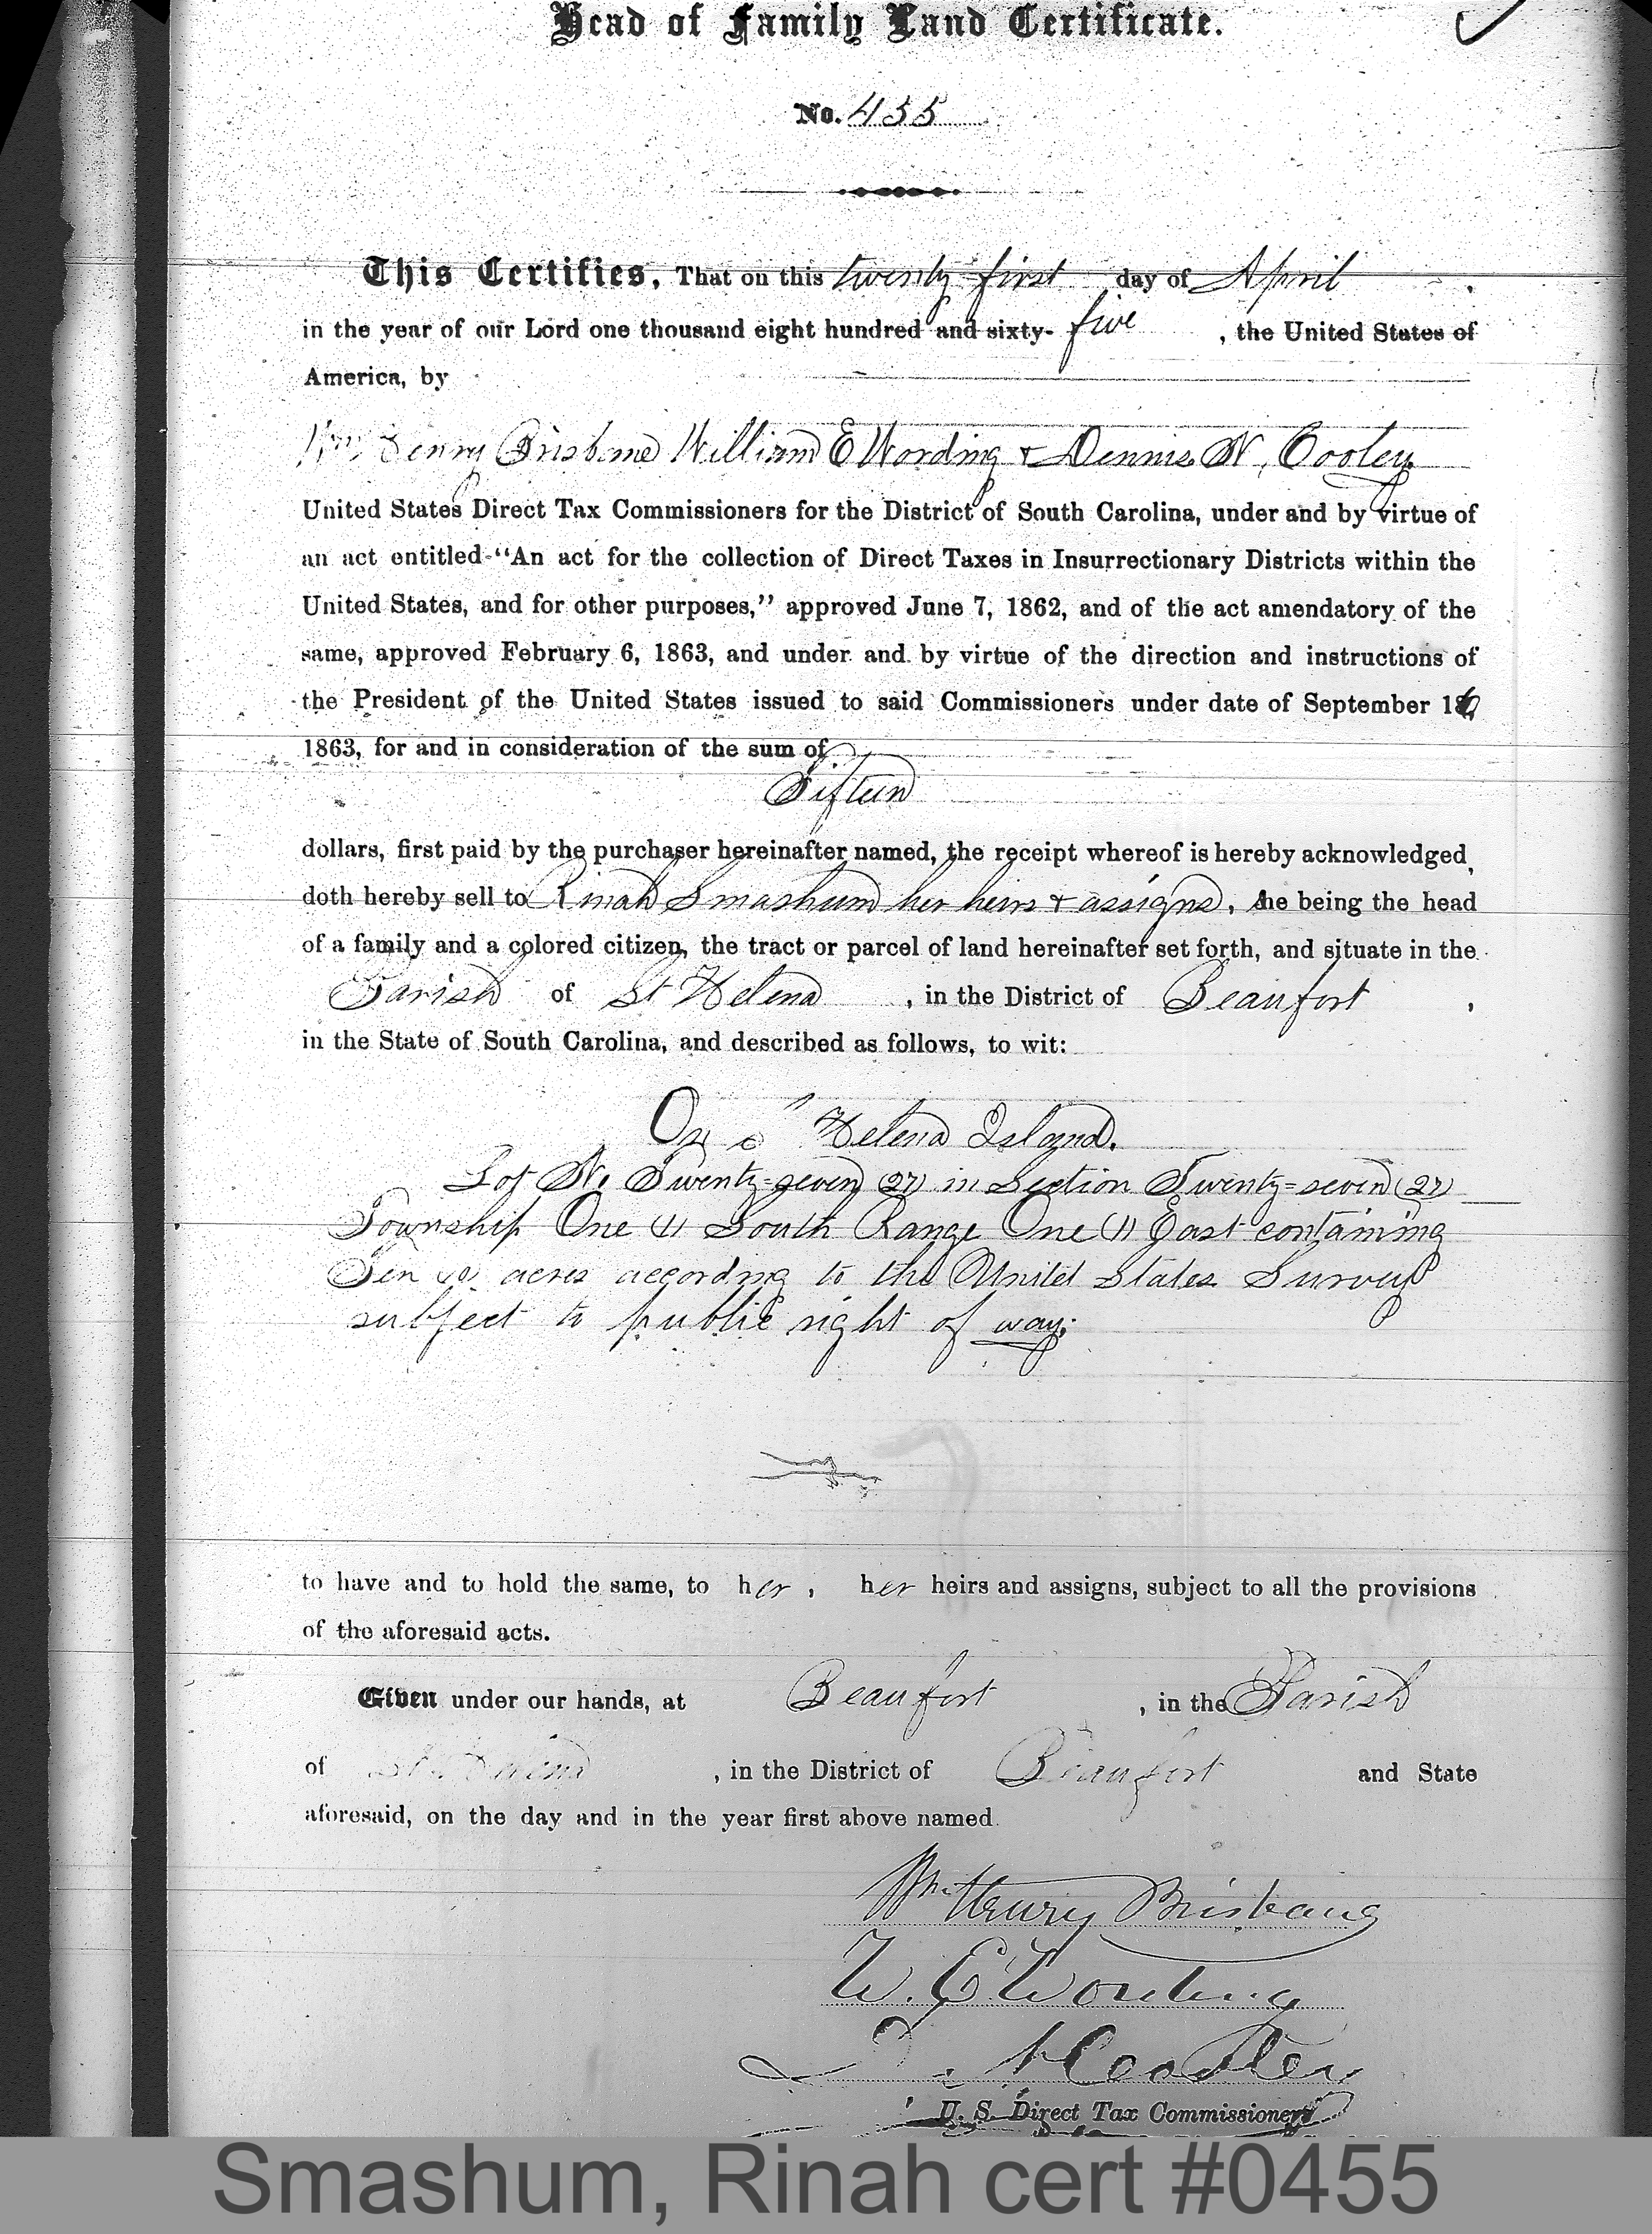 Head of Family Land Certificate.
No. 455
This Certifies, That on this twenty first day of April
in the year of our Lord one thousand eight hundred and sixty- five , the United States of
America, by
Wm Henry Brisbane William E Wording & Dennis N. Cooley
United States Direct Tax Commissioners for the District of South Carolina, under and by virtue of
an act entitled "An act for the collection of Direct Taxes in Insurrectionary Districts within the
United States, and for other purposes," approved June 7, 1862, and of the act amendatory of the
same, approved February 6, 1863, and under and by virtue of the direction and instructions of
the President of the United States issued to said Commissioners under date of September 16,
1863, for and in consideration of the sum of
Fifteen
dollars, first paid by the purchaser hereinafter named, the receipt whereof is hereby acknowledged,
doth hereby sell to Rinah Smashum her heirs & assigns, she being the head
of a family and a colored citizen, the tract or parcel of land hereinafter set forth, and situate in the
Parish of St Helena , in the District of Beaufort ,
in the State of South Carolina, and described as follows, to wit:
On St Helena Island.
Lot No. Twenty=seven (27) in Section Twenty=seven (27)
Township One (1) South Range One (1) East containing
Ten (10) acres according to the United States Survey
subject to public right of way.
to have and to hold the same, to her , her heirs and assigns, subject to all the provisions
of the aforesaid acts.
Given under our hands, at Beaufort , in the Parish
of St Helena , in the District of Beaufort and State
aforesaid, on the day and in the year first above named.
Wm Henry Brisbane
W. E. Wording
D. N. Cooley
U. S. Direct Tax Commissioners
Smashum, Rinah cert #0455